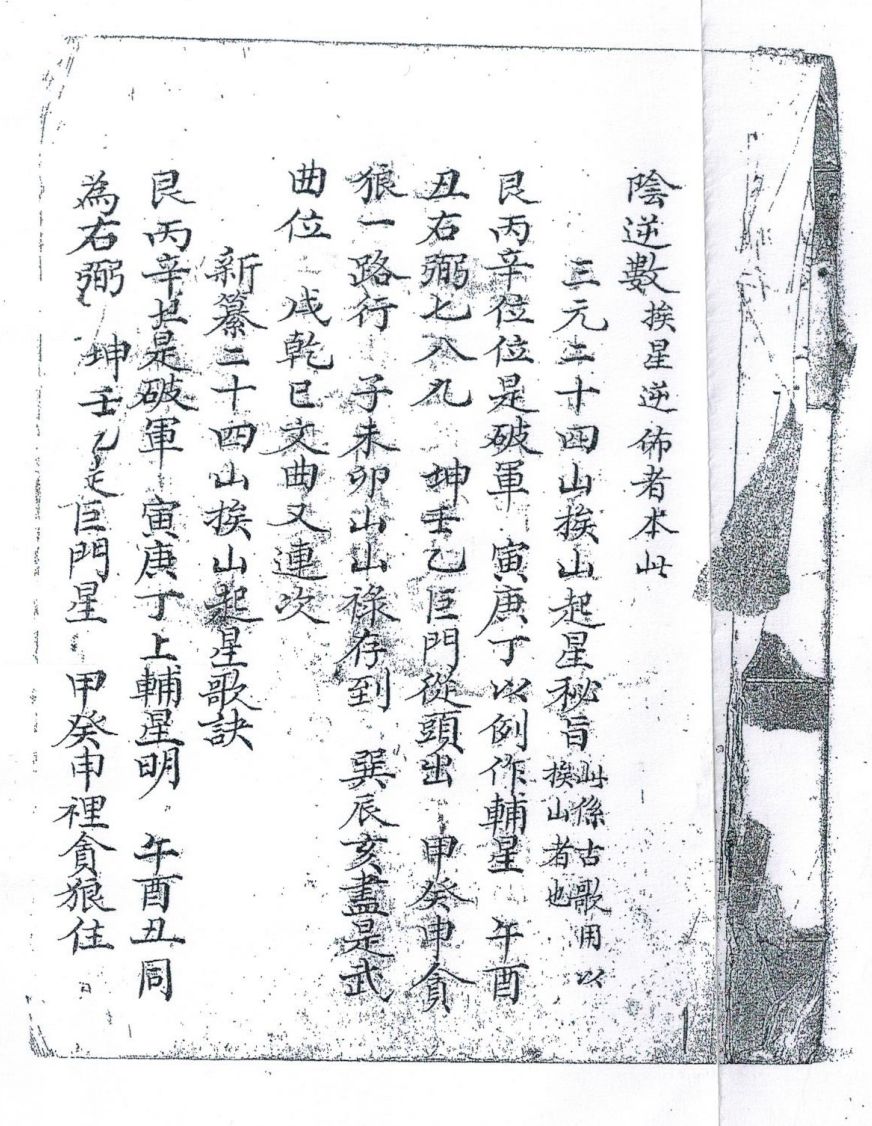 陰逆數 挨星逆佈者本此
三元二十四山挨山起星秘旨 此係古歌用以挨山者也
艮丙辛位位是破軍 寅庚丁以例作輔星 午酉
丑右弼七八九 坤壬乙巨門從頭出 甲癸申貪
狼一路行 子未卯山山祿存到 巽辰亥盡是武
曲位 戌乾巳文曲又連次
新纂二十四山挨山起星歌訣
艮丙辛位是破軍 寅庚丁上輔星明 午酉丑同
為右弼 坤壬乙是巨門星 甲癸申裡貪狼住